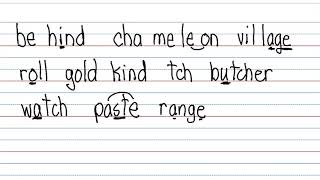 be hind cha me le on vil lage
roll gold kind tch butcher
watch paste range